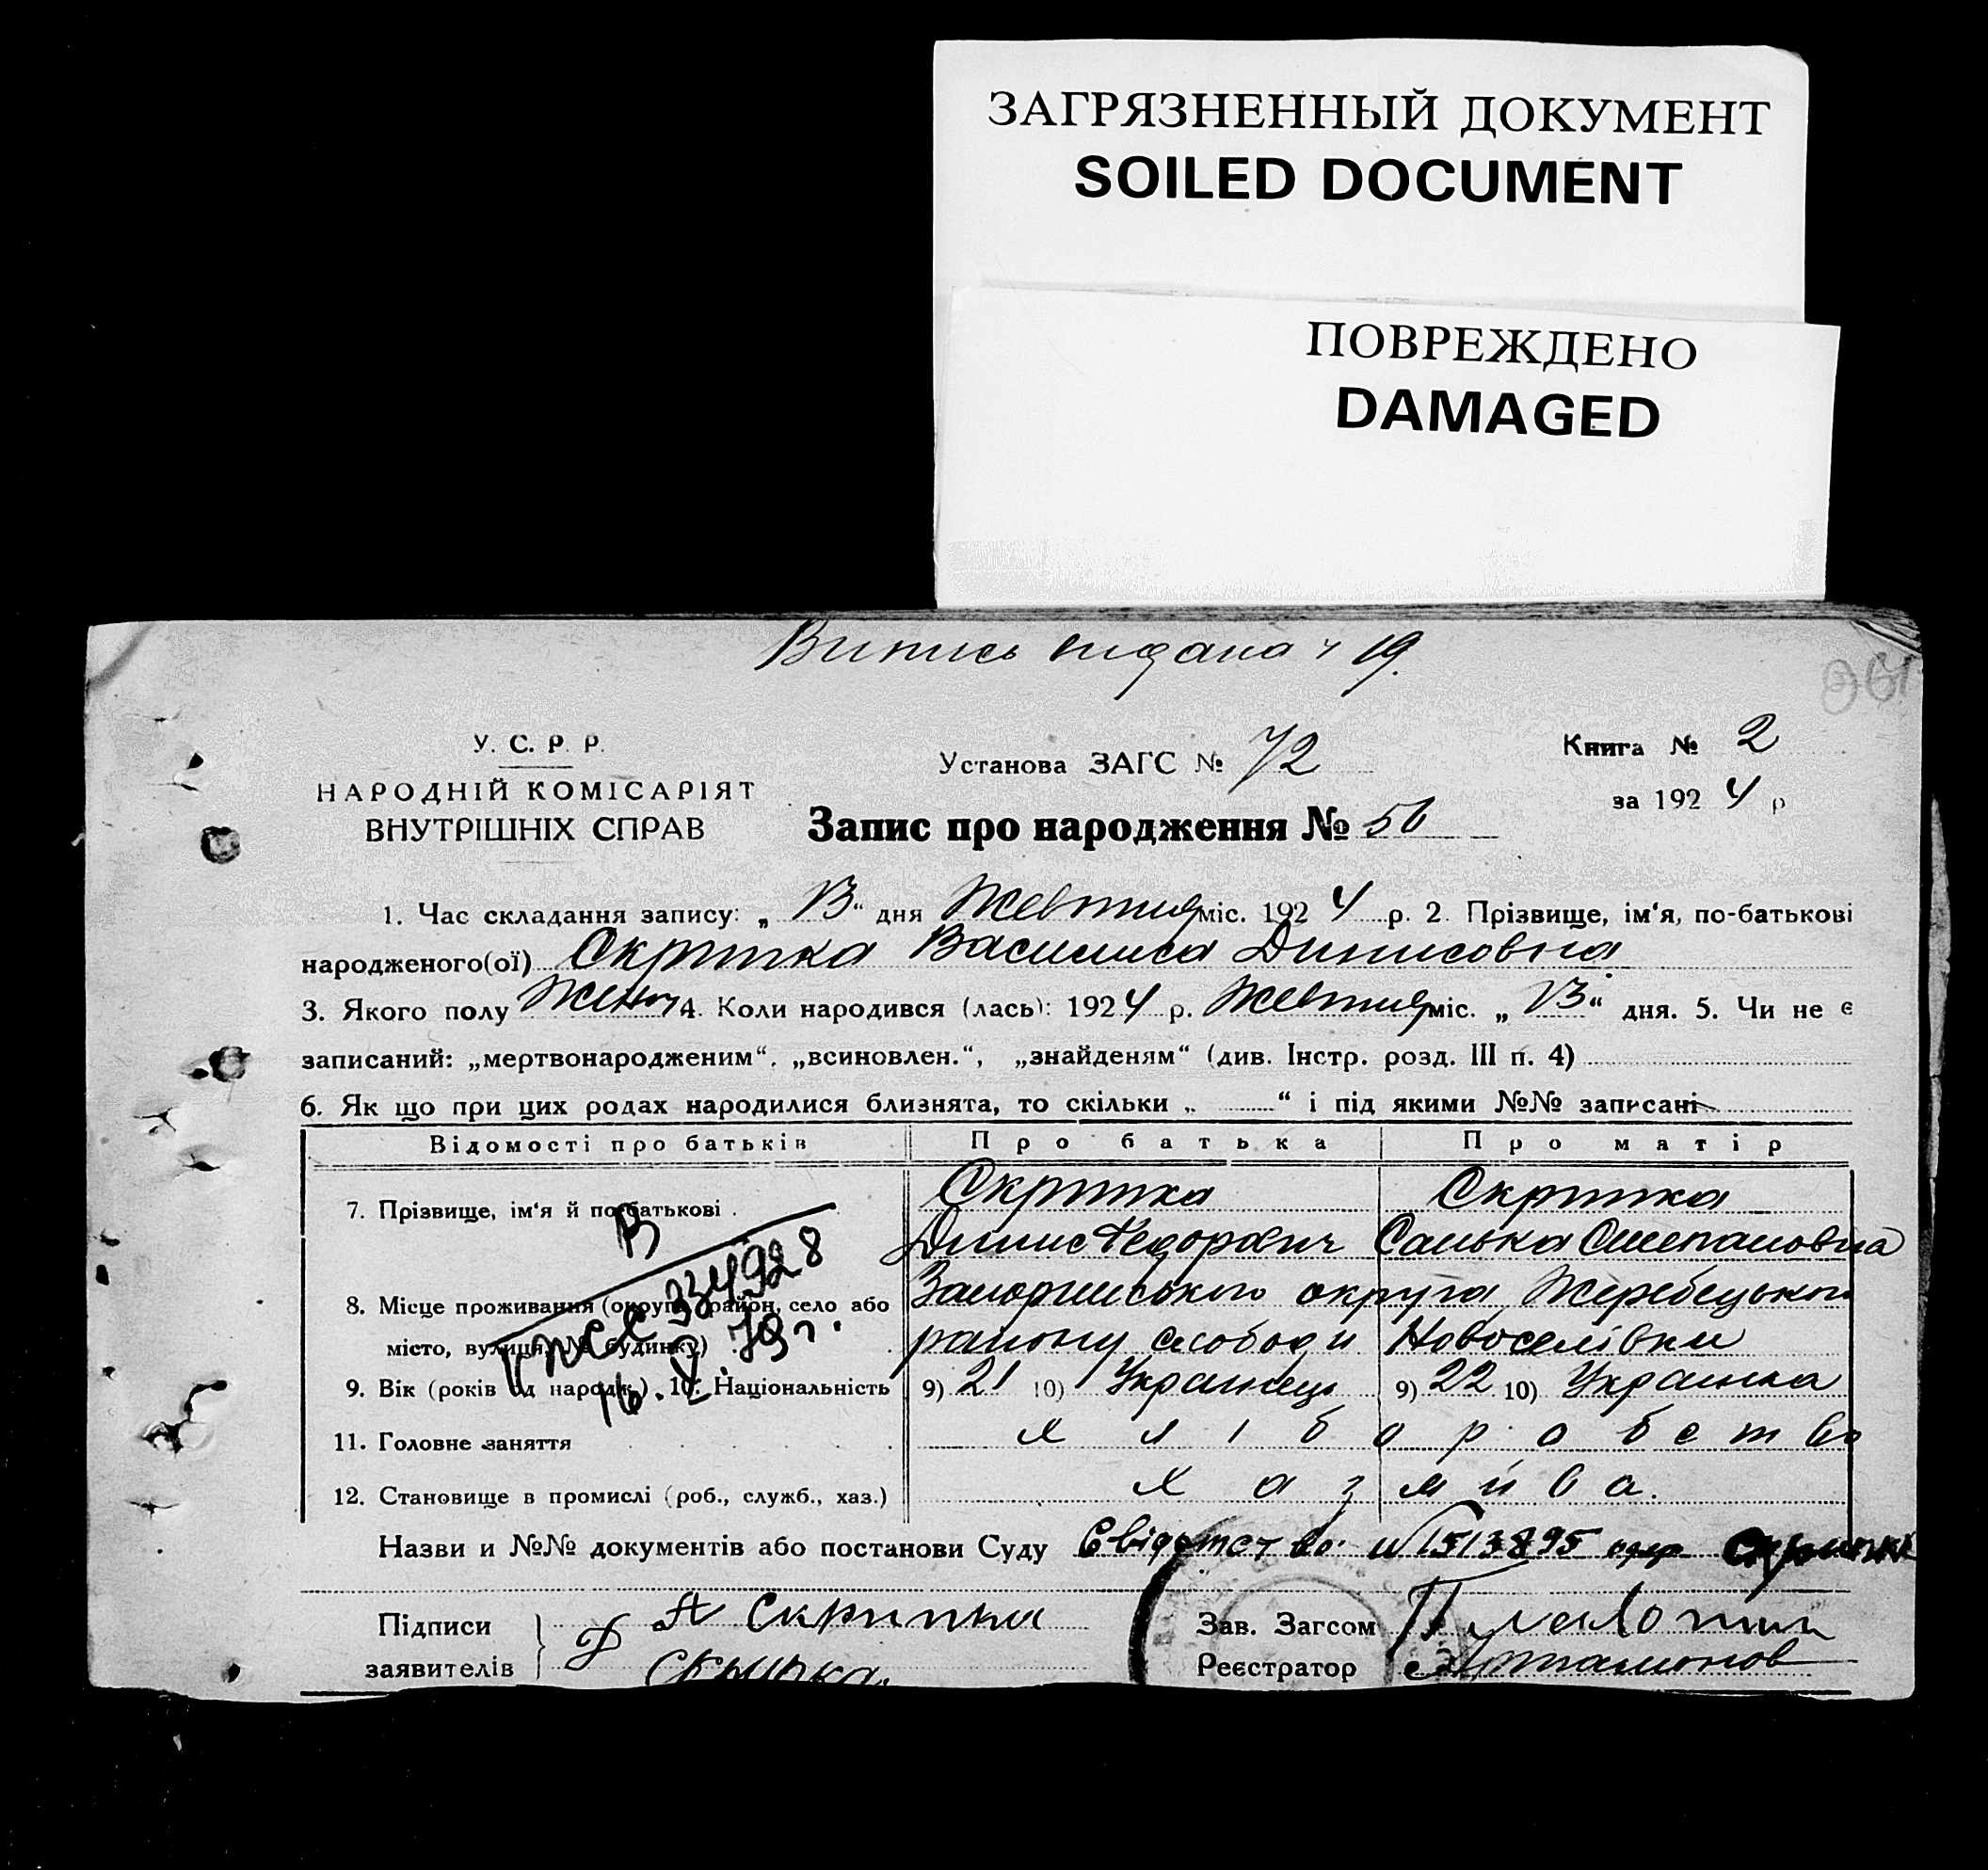 ЗАГРЯЗНЕННЫЙ ДОКУМЕНТ
SOILED DOCUMENT
ПОВРЕЖДЕНО
DAMAGED
Випись видана 19
У. С. Р. Р.
НАРОДНІЙ КОМІСАРІЯТ
ВНУТРІШНІХ СПРАВ
Установа ЗАГС № 72
Книга № 2
за 1924 р
Запис про народження № 56
1. Час складання запису: „ 13 “ дня Жовтня міс. 1924 р. 2. Прізвище, ім'я, по-батькові
народженого(ої) Скрипка Василиса Динисовна
3. Якого полу Жен 4. Коли народився (лась): 1924 р. Жовтня міс. „ 13 “ дня. 5. Чи не є
записаний: „мертвонародженим“, „всиновлен.“, „знайденям“ (див. Інстр. розд. III п. 4)
6. Як що при цих родах народилися близнята, то скільки „ “ і під якими №№ записані
Відомості про батьків Про батька Про матір
7. Прізвище, ім'я й по-батькові Скрипка Скрипка
Динис Федорович Санька Степановна
8. Місце проживання (округа, район, село або Запоріжського округа Жеребецького
місто, вулиця, № будинку) району слободи Новоселівки
9. Вік (років од народж.) 10. Національність 9) 21 10) Українець 9) 22 10) Українка
11. Головне заняття хліборобство
12. Становище в промислі (роб., служб., хаз.) хазяйва.
V ЖС 334928
16. V. 79 г.
Назви и №№ документів або постанови Суду Свідотство N 1513895 Скрипка
Підписи
заявителів
Скрипка
Скрипка.
Зав. Загсом
Реєстратор Артамонов